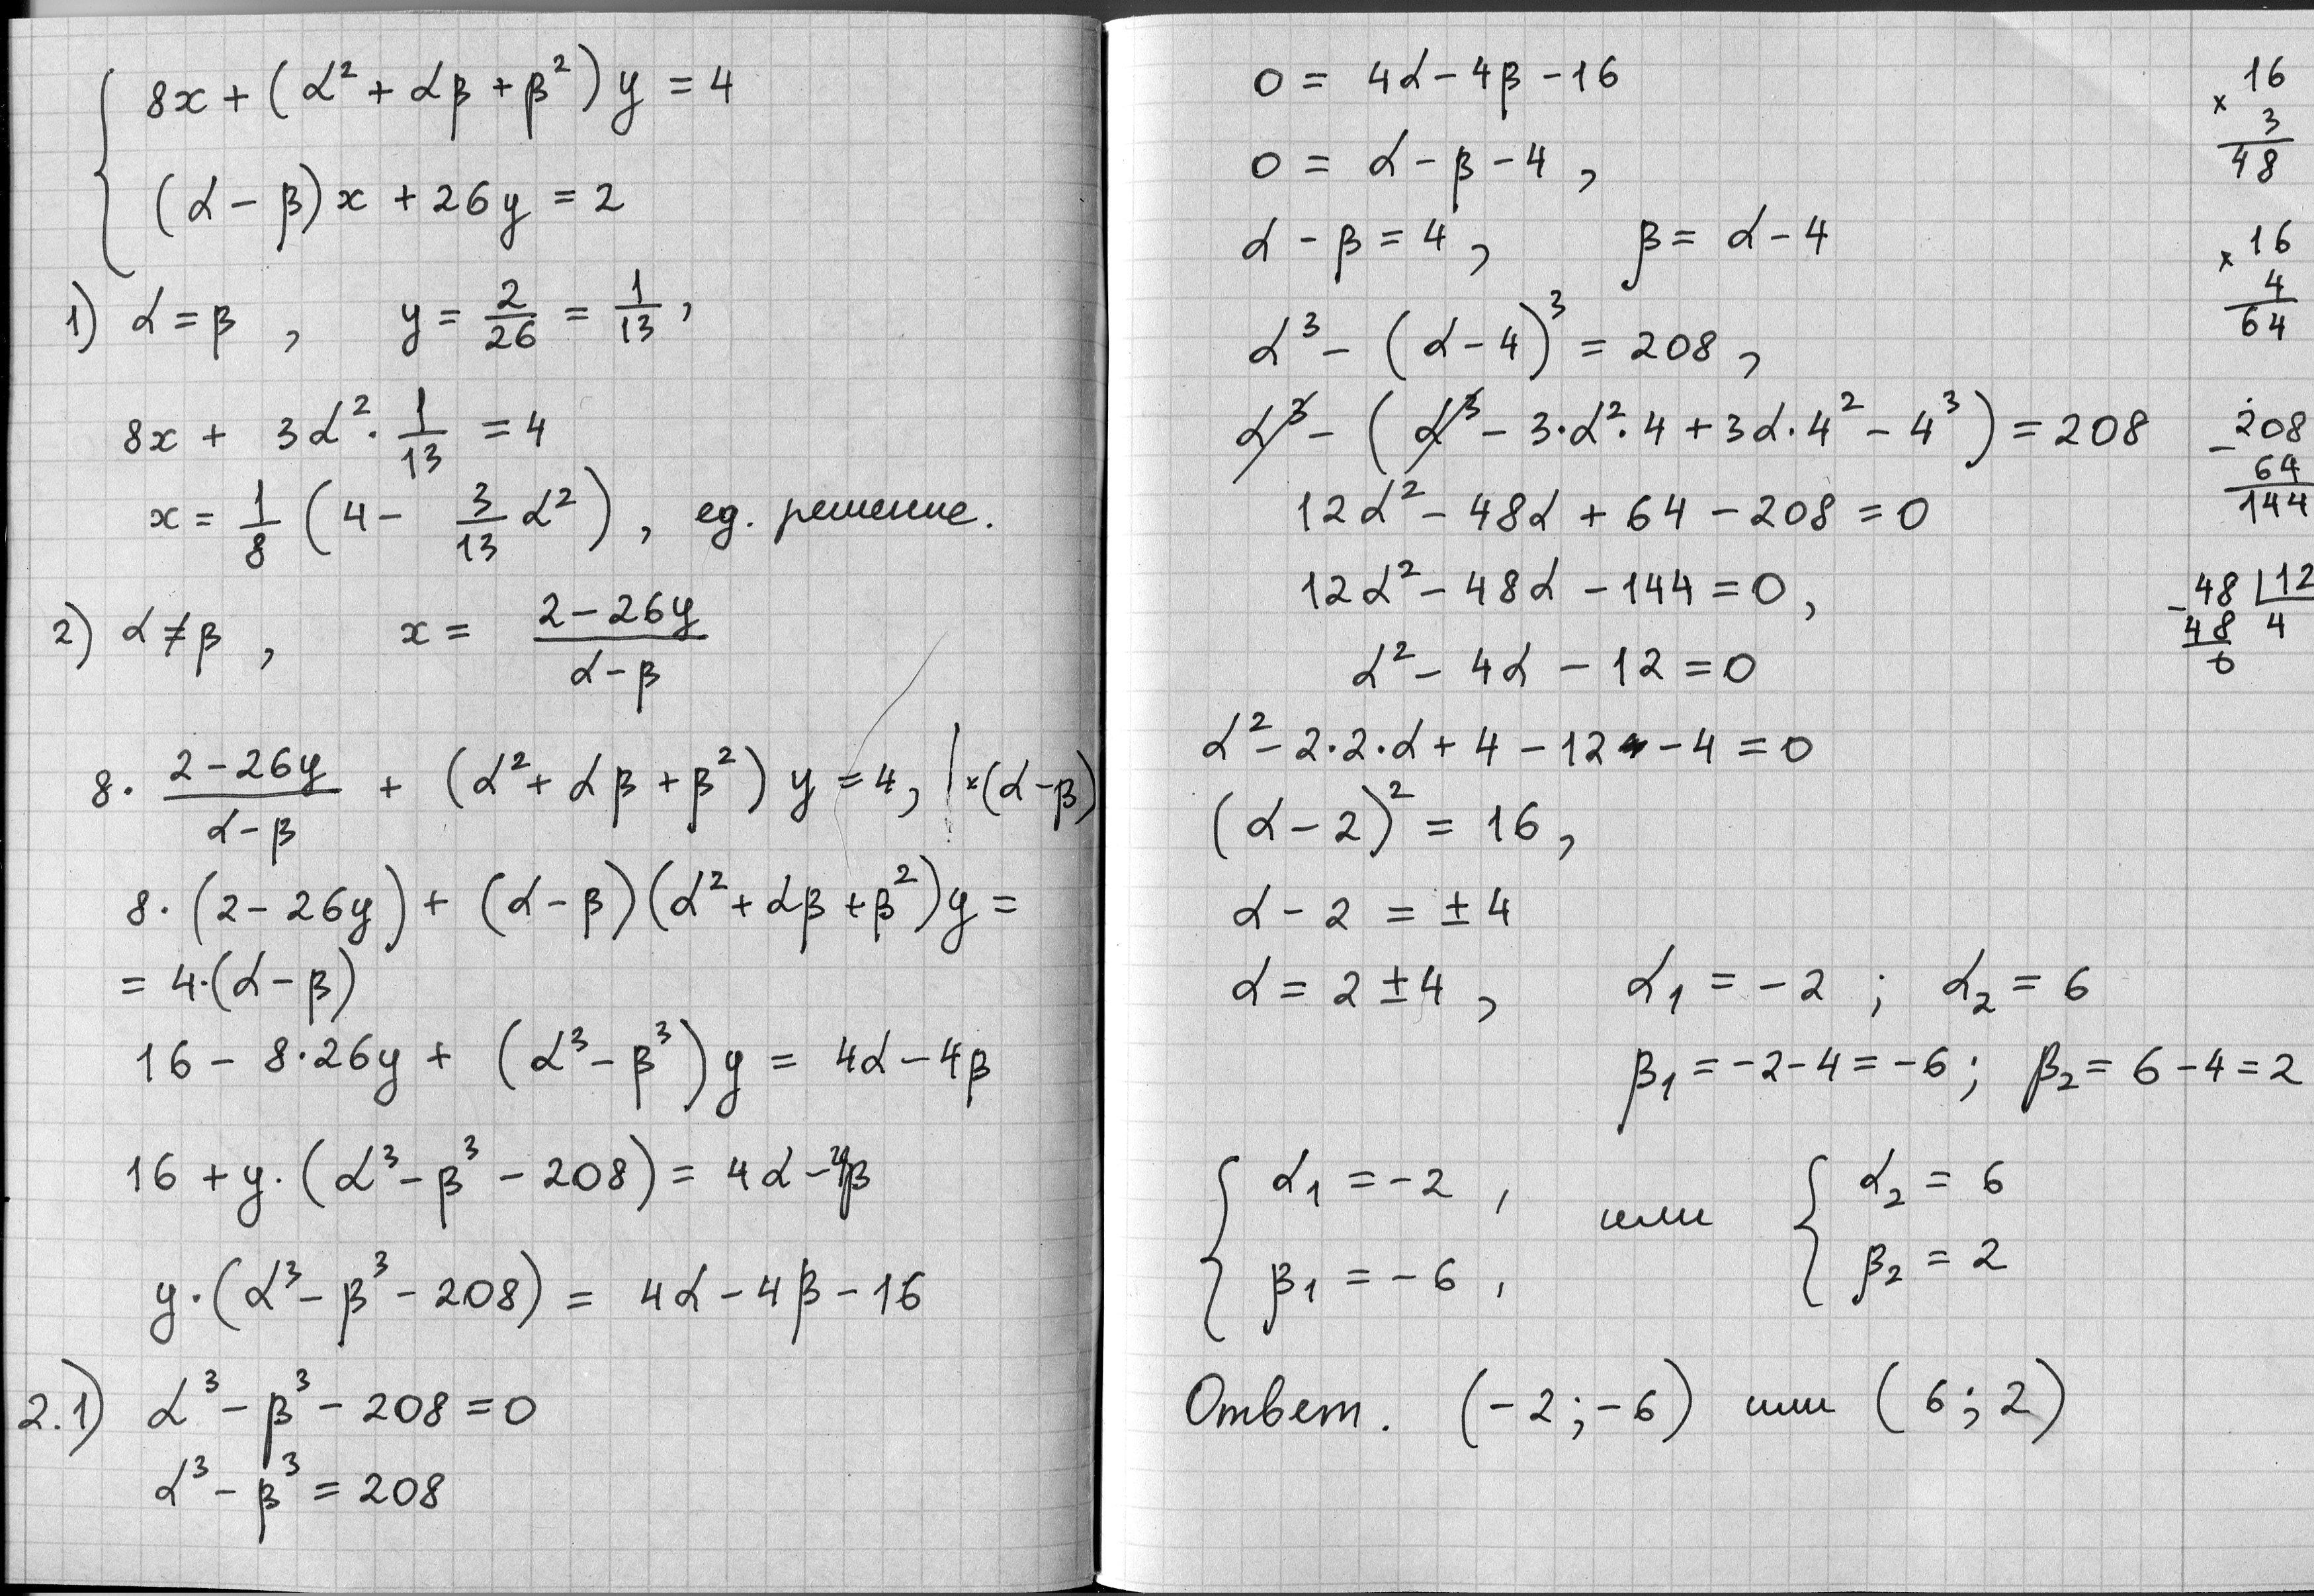 8x + (α² + αβ + β²) y = 4
(α − β) x + 26y = 2
1) α = β , y = 2/26 = 1/13 ,
8x + 3α² · 1/13 = 4
x = 1/8 (4 − 3/13 α²) , ед. решение.
2) α ≠ β , x = (2 − 26y)/(α − β)
8 · (2 − 26y)/(α − β) + (α² + αβ + β²) y = 4, | ×(α − β)
8 · (2 − 26y) + (α − β)(α² + αβ + β²) y =
= 4·(α − β)
16 − 8·26y + (α³ − β³) y = 4α − 4β
16 + y · (α³ − β³ − 208) = 4α − 4β
y · (α³ − β³ − 208) = 4α − 4β − 16
2.1) α³ − β³ − 208 = 0
α³ − β³ = 208
0 = 4α − 4β − 16
0 = α − β − 4 ,
α − β = 4 , β = α − 4
α³ − (α − 4)³ = 208 ,
α³ − (α³ − 3·α²·4 + 3α·4² − 4³) = 208
12α² − 48α + 64 − 208 = 0
12α² − 48α − 144 = 0 ,
α² − 4α − 12 = 0
α² − 2·2·α + 4 − 12 − 4 = 0
(α − 2)² = 16 ,
α − 2 = ± 4
α = 2 ± 4 , α₁ = −2 ; α₂ = 6
β₁ = −2 − 4 = −6 ; β₂ = 6 − 4 = 2
α₁ = −2 , или α₂ = 6
β₁ = −6 , β₂ = 2
Ответ. (−2 ; −6) или (6 ; 2)
× 16
3
48
× 16
4
64
− 208
64
144
− 48 | 12
48 4
0